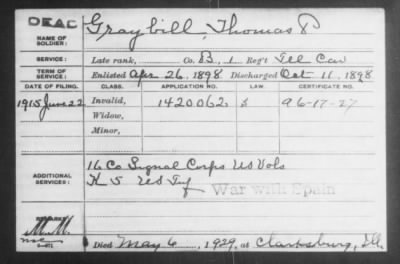 DEAC
NAME OF SOLDIER: Graybill, Thomas P
SERVICE: Late rank, Co. B, 1 Reg't Ill Cav
TERM OF SERVICE: Enlisted Apr 26, 1898 Discharged Oct 11, 1898
DATE OF FILING. CLASS. APPLICATION NO. LAW. CERTIFICATE NO.
1915 June 22 Invalid, 1420062 S 96-17-27
Widow,
Minor,
ADDITIONAL SERVICES: 16 Co Signal Corps US Vols
K 5 US Inf War with Spain
REMARKS:
M.M.
Died May 6, 1929, at Clarksburg, Ill.